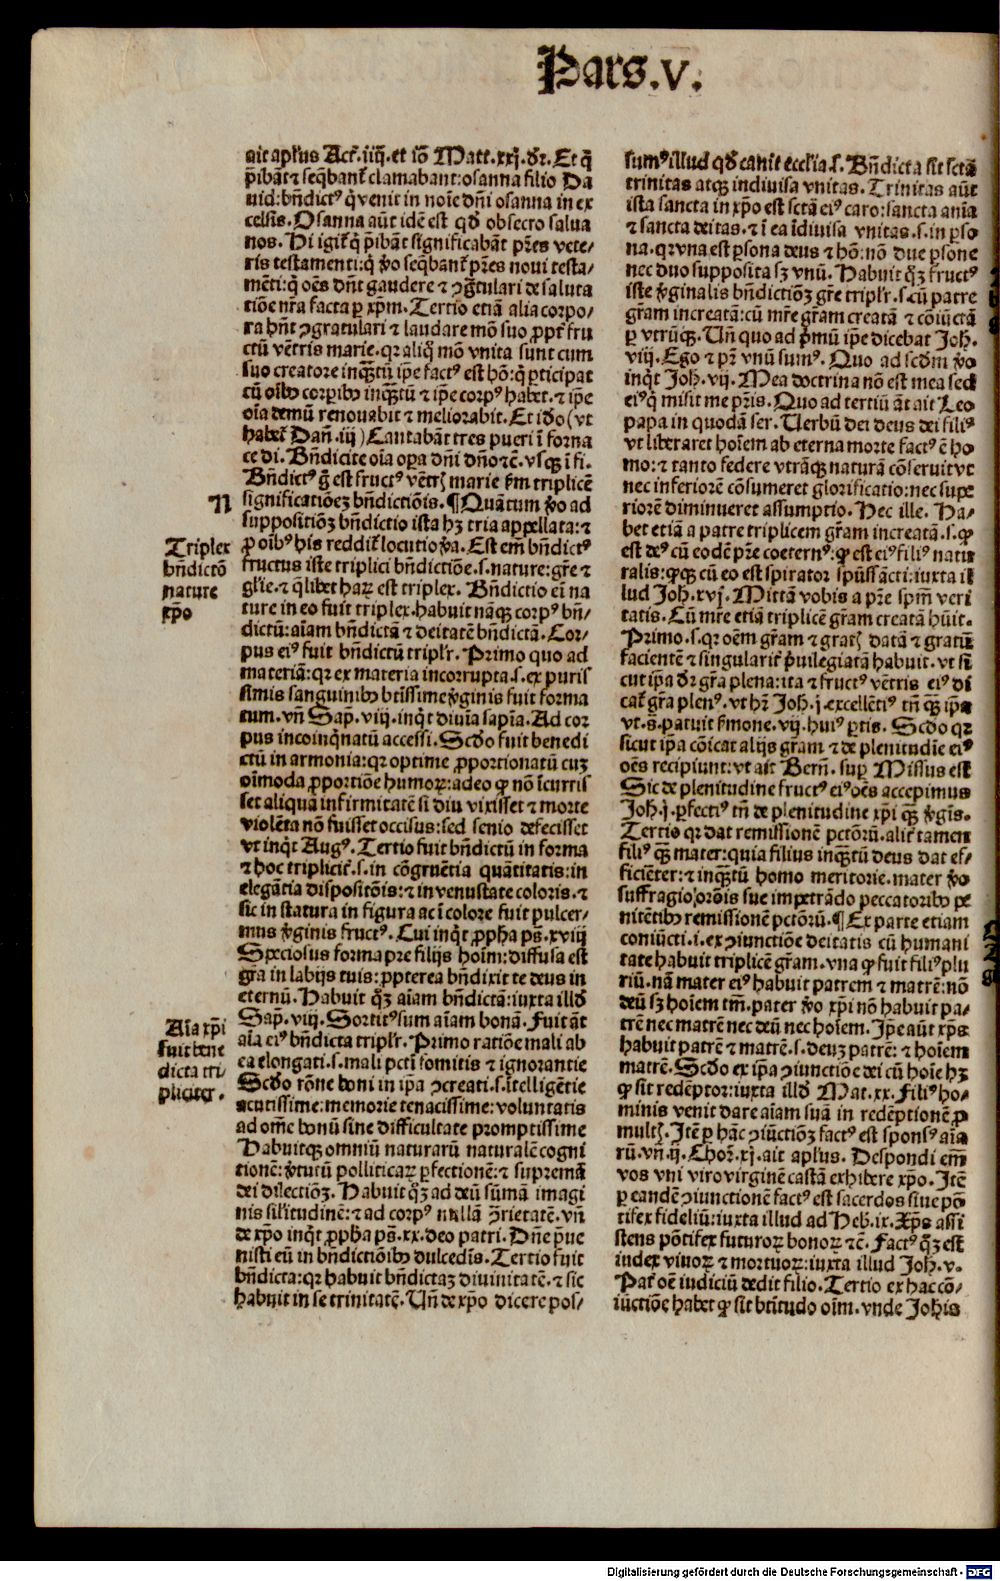 Pars.V.
ait apl'us Act̄.iiij.et iō Matt.xxj.dr̄.Et q̄
p̄ibāt ⁊ seq̄bant̄ clamabant:osanna filio Da
uid:bn̄dictꝰ q̇ venit in noīe dn̄i osanna in ex
celsis.Osanna aūt idē est qd̄ obsecro salua
nos.Hi igit̄ q̇ p̄ibāt significabāt p̄res vete/
ris testamenti:q̇ ꝟo seq̄bant̄ p̄res noui testa/
mēti:q̇ oēs dn̄t gaudere ⁊ ꝯgr̄tulari de saluta
tiōe nr̄a facta ꝑ xp̄m.Tertio etiā alia corpo/
ra hn̄t ꝯgratulari ⁊ laudare mō suo ꝓpt̄ fru
ctū vētris marie.qr aliq̊ mō vnita sunt cum
suo creatore inqꝫtū ip̄e factꝰ est hō:q̇ ꝑticipat
cū oībꝰ corꝑibꝰ inqꝫtū ⁊ ip̄e corpꝰ habet.⁊ ip̄e
oīa demū renouabit ⁊ meliorabit.Et idō(vt
habet̄ Dan̄.iij)Cantabāt tres pueri ī forna
ce di.Bn̄dicite oīa oꝑa dn̄i dn̄o ⁊c̄.vsqꝫ ī fi.
Bn̄dictꝰ g̊ est fructꝰ vētrꝭ marie ẜm triplicē
significatiōeꝫ bn̄dictiōis.¶Quātum ꝟo ad
suppositiōꝫ bn̄dictio ista hꝫ tria appellata:⁊
ꝓ oībꝰ his reddit̄ locutio ꝟa.Est em̄ bn̄dictꝰ
fructus iste triplici bn̄dictiōe.s.nature:gr̄e ⁊
gl'ie.⁊ q̄libet haꝝ est triplex.Bn̄dictio ei na
ture in eo fuit triplex.habuit nāqꝫ corpꝰ bn̄/
dictū:aīam bn̄dictā ⁊ deitatē bn̄dictā.Cor/
pus eiꝰ fuit bn̄dictū tripl'r.Primo quo ad
materiā:qr ex materia incorrupta.s.ex puris
simis sanguinibꝰ btīssime ꝟginis fuit forma
tum.vn̄ Sap̄.viij.inq̇t diuīa sapīa.Ad cor
pus incoinq̇natū accessi.Scd̄o fuit benedi
ctū in armonia:qr optime ꝓportionatū cuꝫ
oīmoda ꝓportiōe humoꝝ:adeo ꝙ nō īcurris
set aliquā infirmitatē si diu vixisset ⁊ morte
violēta nō fuisset occisus:sed senio defecisset
vt inq̇t Augꝰ.Tertio fuit bn̄dictū in forma
⁊ hoc triplicit̄.s.in cōgruētia quātitatis:in
elegātia dispositōis:⁊ in venustate coloris.⁊
sic in statura in figura ac ī colore fuit pulcer/
mus ꝟginis fructꝰ.Cui inq̇t ꝓpha ps̄.xviij
Speciosus forma pre filijs hoīm:diffusa est
gr̄a in labijs tuis:ꝓpterea bn̄dixit te deus in
eternū.Habuit q̊ꝫ aīam bn̄dictā:iuxta illd̄
Sap̄.viij.Sortitꝰ sum aīam bonā.Fuit āt
aīa eiꝰ bn̄dicta tripl'r.Primo ratiōe mali ab
ea elongati.s.mali pctī fomitis ⁊ ignorantie
Scd̄o rōne boni in ip̄a ꝯcreati.s.ītelligētie
acutissime:memorie tenacissime:voluntatis
ad om̄e bonū sine difficultate promptissime
Habuitqꝫ omniū naturarū naturalē cogni
tionē:ꝟtutū polliticaꝝ ꝑfectionē:⁊ supremā
dei dilectiōꝫ.Habuit q̊ꝫ ad deū sūmā imagi
nis sil'itudinē:⁊ ad corpꝰ nullā ꝯrietatē.vn̄
de xp̄o inq̇t ꝓpha ps̄.xx.deo patri.Dn̄e p̄ue
nisti eū in bn̄dictiōibꝰ dulcedīs.Tertio fuit
bn̄dicta:qr habuit bn̄dictaꝫ diuinitatē.⁊ sic
habuit in se trinitatē.Vn̄ de xp̄o dicere pos/
N
Triplex
bn̄dictō
nature
xp̄o
Aīa xp̄i
fuit bene
dicta tri
pliciter.
sumꝰ illud qd̄ canit eccl'ia.s.Bn̄dicta sit sctā
trinitas atqꝫ indiuisa vnitas.Trinitas aūt
ista sancta in xp̄o est sctā eiꝰ caro:sancta aīa
⁊ sancta deitas.⁊ ī ea īdiuisa vnitas.s.in ꝑso
na.qr vna est ꝑsona deus ⁊ hō:nō due ꝑsone
nec duo supposita sꝫ vnū.Habuit q̊ꝫ fructꝰ
iste ꝟginalis bn̄dictiōꝫ gr̄e tripl'r.s.cū patre
gr̄am increatā:cū mr̄e gr̄am creatā ⁊ cōiūctā
ꝑ vtrūqꝫ.Vn̄ quo ad p̄mū ip̄e dicebat Joh̄.
viij.Ego ⁊ pr̄ vnū sumꝰ.Quo ad scd̄m ꝟo
inq̇t Joh̄.vij.Mea doctrina nō est mea sed
eiꝰ q̇ misit me pr̄is.Quo ad tertiū āt ait Leo
papa in quodā ser.Verbū dei deus dei filiꝰ
vt liberaret hoīem ab eterna morte factꝰ ē ho
mo:⁊ tanto federe vtrāqꝫ naturā cōseruit vt
nec inferiorē cōsumeret glorificatio:nec supe
riorē diminueret assumptio.Hec ille.Ha/
bet etiā a patre triplicem gr̄am increatā.s.ꝙ
est deꝰ cū eodē pr̄e coeternꝰ:ꝙ est eiꝰ filiꝰ natu
ralis:ꝙqꝫ cū eo est spirator spūssācti:iuxta il
lud Joh̄.xvj.Mittā vobis a pr̄e spm̄ veri
tatis.Cū mr̄e etiā triplicē gr̄am creatā hūit.
Primo.s.qr oēm gr̄am ⁊ gratꝭ datā ⁊ gratū
facientē ⁊ singularit̄ p̄uilegiatā habuit.vt si
cut ip̄a dr̄ gr̄a plena:ita ⁊ fructꝰ vētris eiꝰ di
cat̄ gr̄a plenꝰ.vt hr̄ Joh̄.j.excellētiꝰ tn̄ qꝫ ip̄a
vt.s̄.patuit ẜmone.vij.huiꝰ ꝑtis.Scd̄o qr
sicut ip̄a cōicat alijs gr̄am ⁊ de plenitudīe eiꝰ
oēs recipiunt:vt ait Bern̄.suꝑ Missus est
Sic de plenitudine fructꝰ eiꝰ oēs accepimus
Joh̄.j.ꝑfectiꝰ tn̄ de plenitudine xp̄i qꝫ ꝟgīs.
Tertio qr dat remissionē pctōrū.alit̄ tamen
filiꝰ qꝫ mater:quia filius inqꝫtū deus dat ef/
ficiēter:⁊ inqꝫtū homo meritorie.mater ꝟo
suffragio orōis sue impetrādo peccatoribꝰ pe
nitētibꝰ remissionē pctōrū.¶Ex parte etiam
coniūcti.i.ex ꝯiunctiōe deitatis cū humani
tate habuit triplicē gr̄am.vna ꝙ fuit filiꝰ plu
riū.nā mater eiꝰ habuit patrem ⁊ matrē:nō
deū sꝫ hoīem tm̄.pater ꝟo xp̄i nō habuit pa/
trē nec matrē nec deū nec hoīem.Ip̄e aūt xp̄s
habuit patrē ⁊ matrē.s.deuꝫ patrē:⁊ hoīem
matrē.Scd̄o ex ip̄a ꝯiunctiōe dei cū hoīe hꝫ
ꝙ sit redēptor:iuxta illd̄ Mat.xx.Filiꝰ ho/
minis venit dare aīam suā in redēptionē ꝓ
multꝭ.Itē ꝑ hāc ꝯiūctiōꝫ factꝰ est sponsꝰ aīa
rū.vn̄.ij.Chor̄.xj.ait apl'us.Despondi em̄
vos vni viro virginē castā exhibere xp̄o.Itē
ꝑ eandē ꝯiunctionē factꝰ est sacerdos siue pō
tifex fideliū:iuxta illud ad Heb̄.ix.Xp̄s assi
stens pōtifex futuroꝝ bonoꝝ ⁊c̄.Factꝰ q̊ꝫ est
iudex viuoꝝ ⁊ mortuoꝝ:iuxta illud Joh̄.v.
Pat̄ oē iudiciū dedit filio.Tertio ex hac cō/
iūctiōe habet ꝙ sit btītudo oīm.vnde Joh̄is
Digitalisierung gefördert durch die Deutsche Forschungsgemeinschaft - DFG